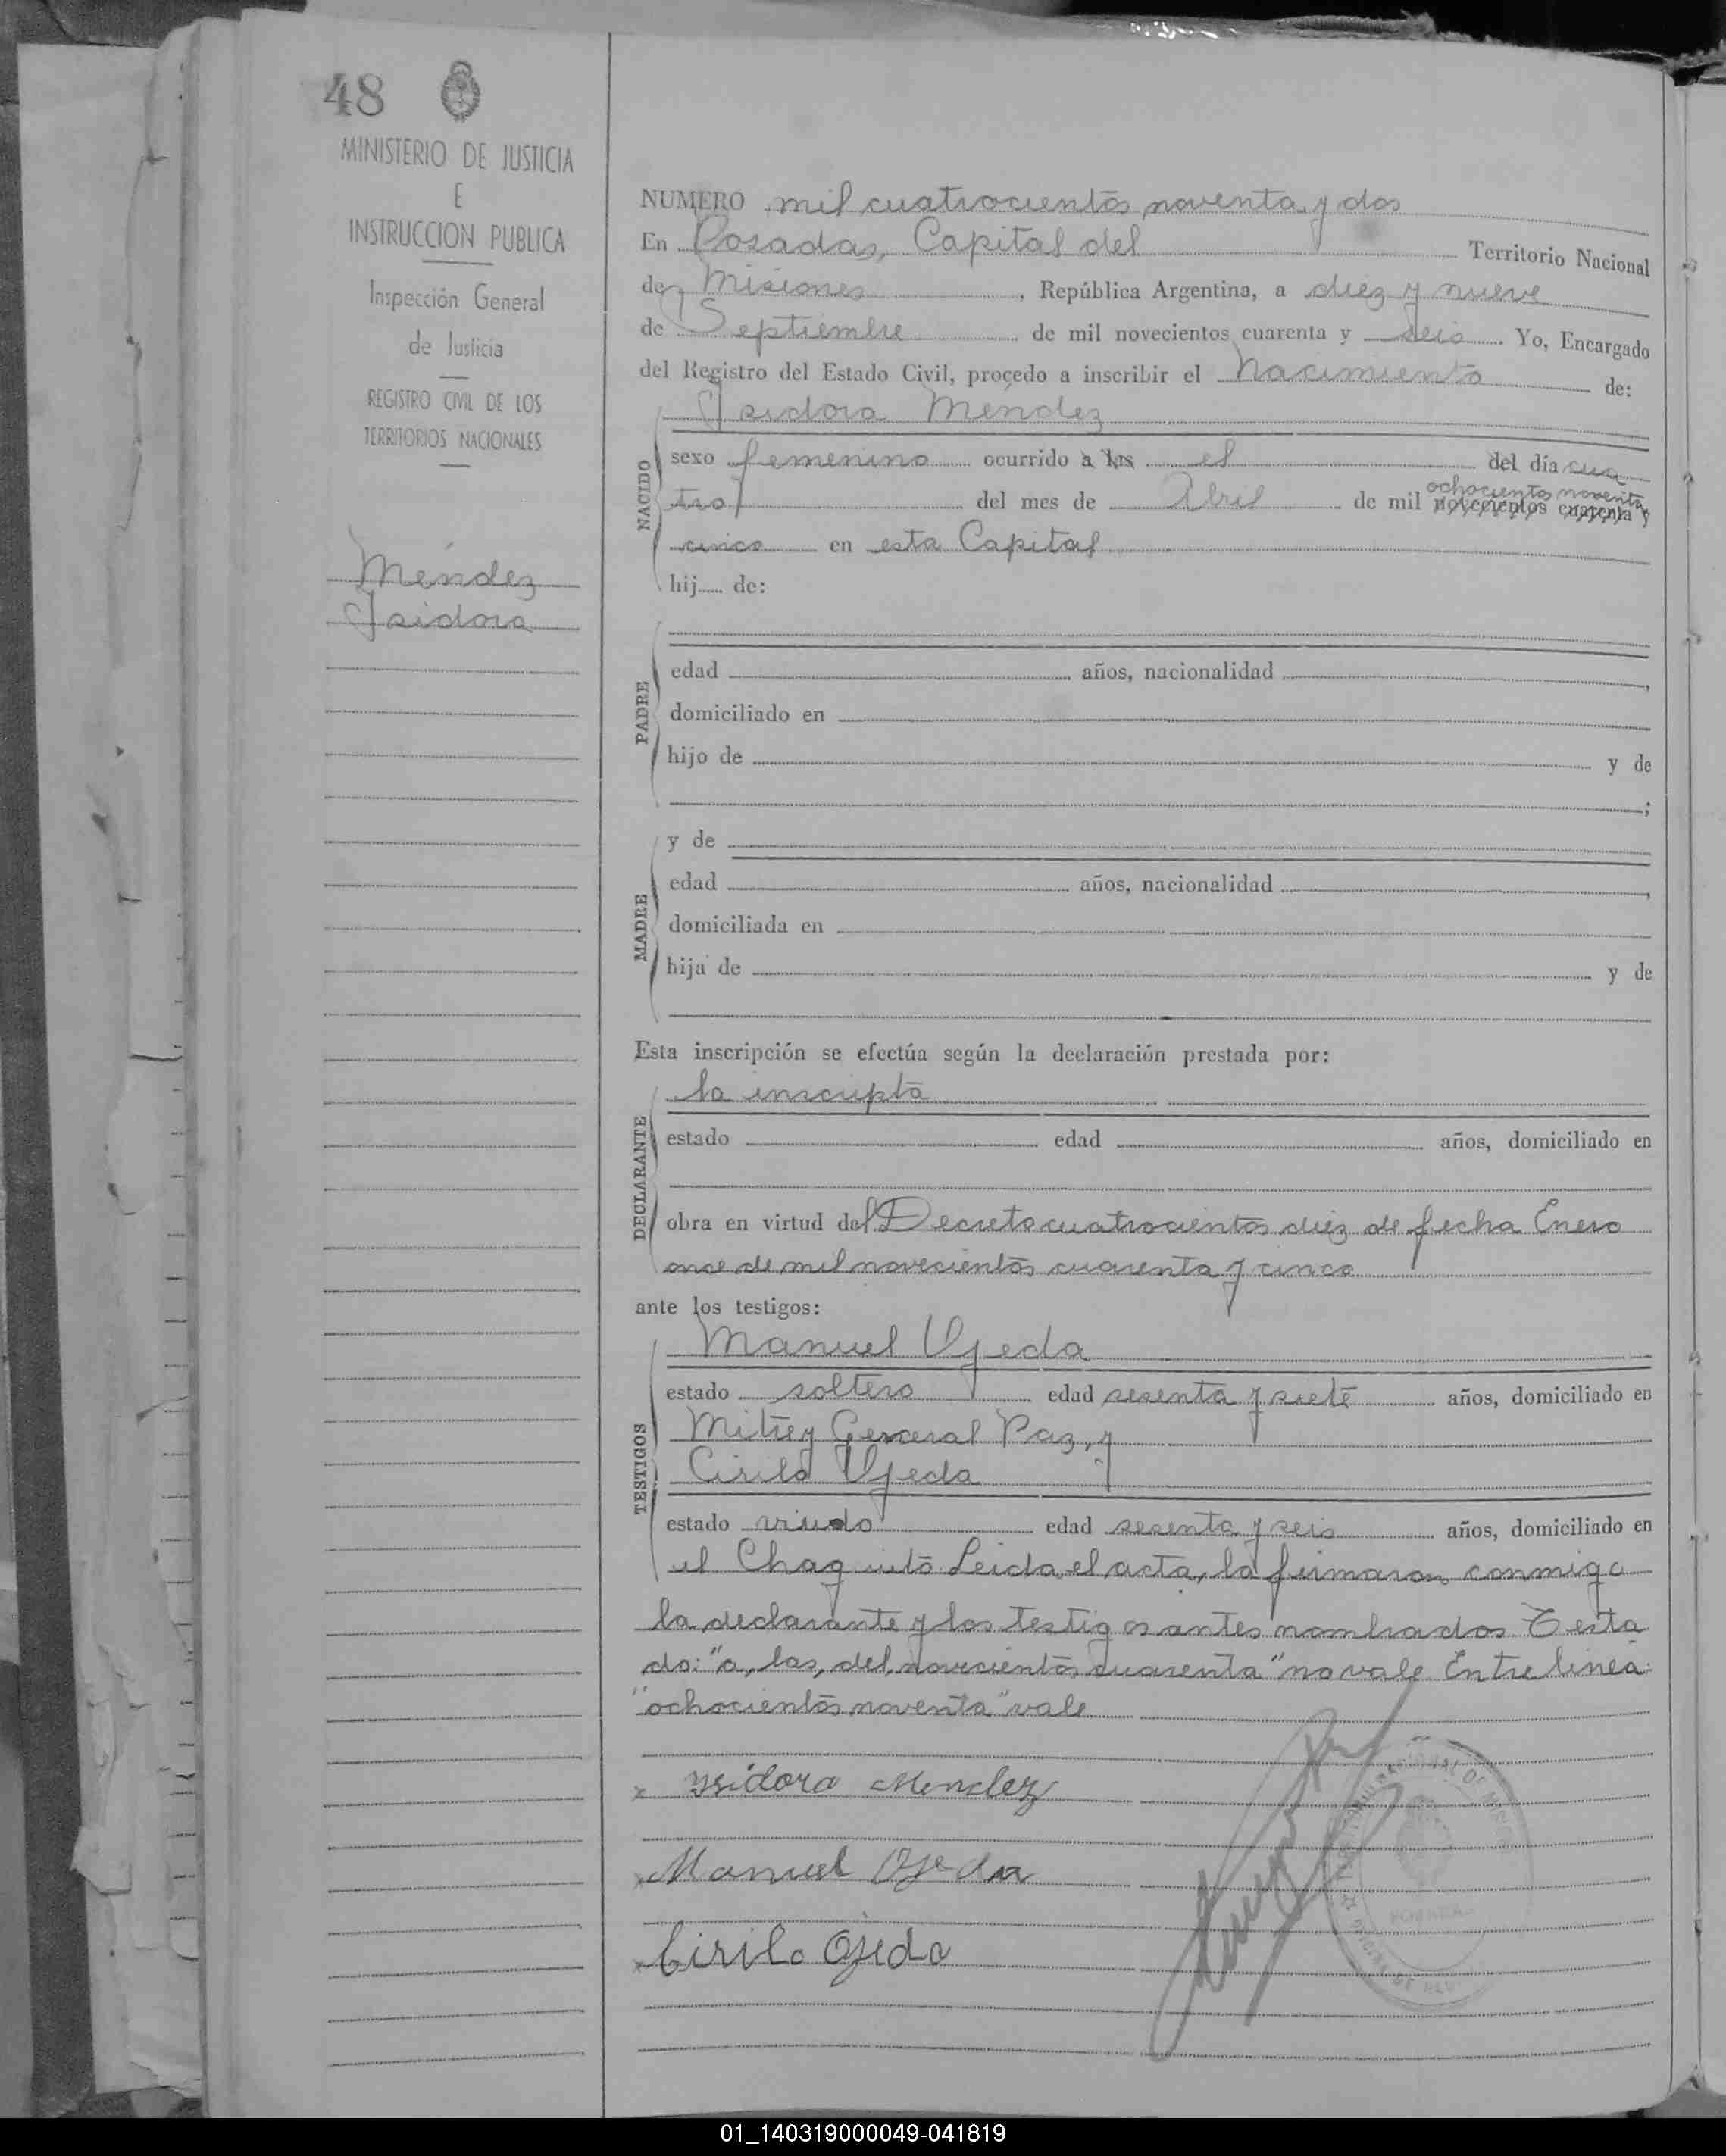 48
MINISTERIO DE JUSTICIA
E
INSTRUCCION PUBLICA
Inspección General
de Justicia
REGISTRO CIVIL DE LOS
TERRITORIOS NACIONALES
Méndez
Isidora
NUMERO mil cuatrocientos noventa y dos
En Posadas, Capital del Territorio Nacional
de Misiones, República Argentina, a diez y nueve
de Septiembre de mil novecientos cuarenta y seis. Yo, Encargado
del Registro del Estado Civil, procedo a inscribir el Nacimiento de:
Isidora Méndez
NACIDO
sexo femenino ocurrido a las el del día cua
tro del mes de Abril de mil novecientos cuarenta y
ochocientos noventa
cinco en esta Capital
hij..... de:
PADRE
edad años, nacionalidad ,
domiciliado en
hijo de y de
;
MADRE
y de
edad años, nacionalidad ,
domiciliada en
hija de y de
Esta inscripción se efectúa según la declaración prestada por:
DECLARANTE
la inscripta
estado edad años, domiciliado en
obra en virtud del Decreto cuatrocientos diez de fecha Enero
once de mil novecientos cuarenta y cinco
ante los testigos:
TESTIGOS
Manuel Ojeda
estado soltero edad sesenta y siete años, domiciliado en
Mitre y General Paz, y
Cirilo Ojeda
estado viudo edad sesenta y seis años, domiciliado en
el Chaquito Leida el acta, la firmaron conmigo
la declarante y los testigos antes nombrados Testa
do: "a, las, del, novecientos cuarenta" no vale Entre linea:
"ochocientos noventa" vale
x Ysidora Mendez
x Manuel Ojeda
x Cirilo Ojeda
POSADAS
01_140319000049-041819